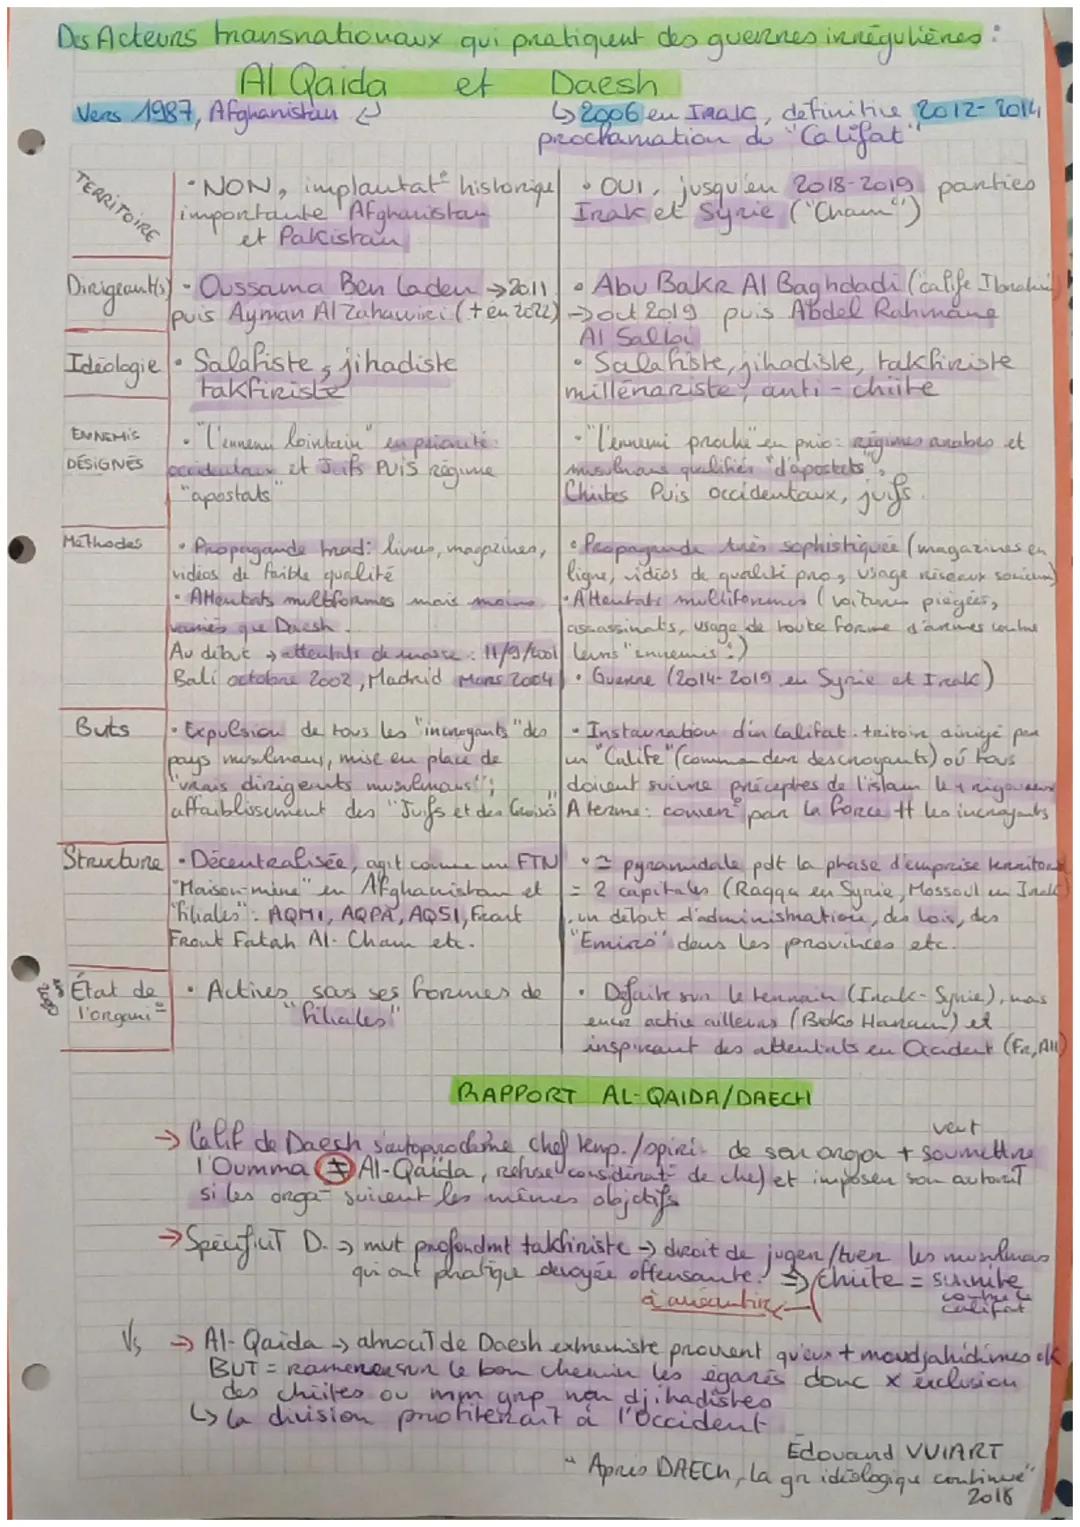 Des Acteurs transnationaux qui pratiquent des guerres irrégulières :
Al Qaida et Daesh
Vers 1987, Afghanistan
↳ 2006 en Irak, définitive 2012-2014
proclamation du "Califat"
TERRITOIRE
• NON, implantat° historique
importante Afghanistan
et Pakistan
• OUI, jusqu'en 2018-2019 parties
Irak et Syrie ("Cham")
Dirigeant(s)
• Oussama Ben Laden → 2011
puis Ayman Al Zahawiri (+ en 2022)
• Abu Bakr Al Baghdadi (calife Ibrahim)
→ oct 2019 puis Abdel Rahmane
Al Salbi
Idéologie
• Salafiste, jihadiste
takfiriste
• Salafiste, jihadiste, takfiriste
millénariste, anti-chiite
ENNEMIS
DÉSIGNÉS
• "L'ennemi lointain" en priorité :
occidentaux et Juifs PUIS régime
"apostats"
• "l'ennemi proche" en prio : régimes arabes et
musulmans qualifiés "d'apostats",
Chiites Puis occidentaux, juifs.
Méthodes
• Propagande trad : livres, magazines,
vidéos de faible qualité
• Attentats multiformes mais moins
variés que Daesh.
Au début → attentats de masse : 11/9/2001
Bali octobre 2002, Madrid Mars 2004
• Propagande très sophistiquée (magazines en
ligne, vidéos de qualité pro, usage réseaux sociaux)
• Attentats multiformes (voitures piégées,
assassinats, usage de toute forme d'armes contre
leurs "ennemis".)
• Guerre (2014-2019 en Syrie et Irak)
Buts
• Expulsion de tous les "incroyants" des
pays musulmans, mise en place de
"vrais dirigeants musulmans" ;
affaiblissement des "Juifs et des Croisés"
• Instauration d'un Califat : dirigé par
un "Calife" (commandeur des croyants) où tous
doivent suivre préceptes de l'islam le + rigoureux
A terme : convers° par la force tt les incroyants
Structure
• Décentralisée, agit comme une FTN
"Maison-mère" en Afghanistan et
"filiales" : AQMI, AQPA, AQSI, Front
Front Fatah Al-Cham etc.
• ≃ pyramidale pdt la phase d'emprise territoriale
= 2 capitales (Raqqa en Syrie, Mossoul en Irak)
, un début d'administration, des lois, des
"Emirs" dans les provinces etc.
État de
l'organi°
• Actives sous ses formes de
"filiales"
• Défaite sur le terrain (Irak-Syrie), mais
encore active ailleurs (Boko Haram) et
inspirant des attentats en Occident (Fr, All)
RAPPORT AL-QAIDA/DAECH
→ Calif de Daesh s'autoproclame chef temp./spiri. de son orga + veut soumettre
l'Oumma ≠ Al-Qaïda, refuse considérat° de chef et imposer son autorité
si les orga° suivent les mêmes objectifs
→ Spécificité D. → mvt profondmt takfiriste → droit de juger/tuer les musulmans
qui ont pratique dévoyée offensante. ⇒ chiite = sunnite
contre le
califat
à anéantir
Vs → Al-Qaïda → Daesh extrémiste prouvent qu'eux + moudjahidines ok
BUT = ramener sur le bon chemin les égarés donc x exclusion
des chiites ou mm grp non djihadistes
↳ la division profiterait à l'Occident
Édouard VUIART
"Après DAECH, la gr idéologique continue"
2018